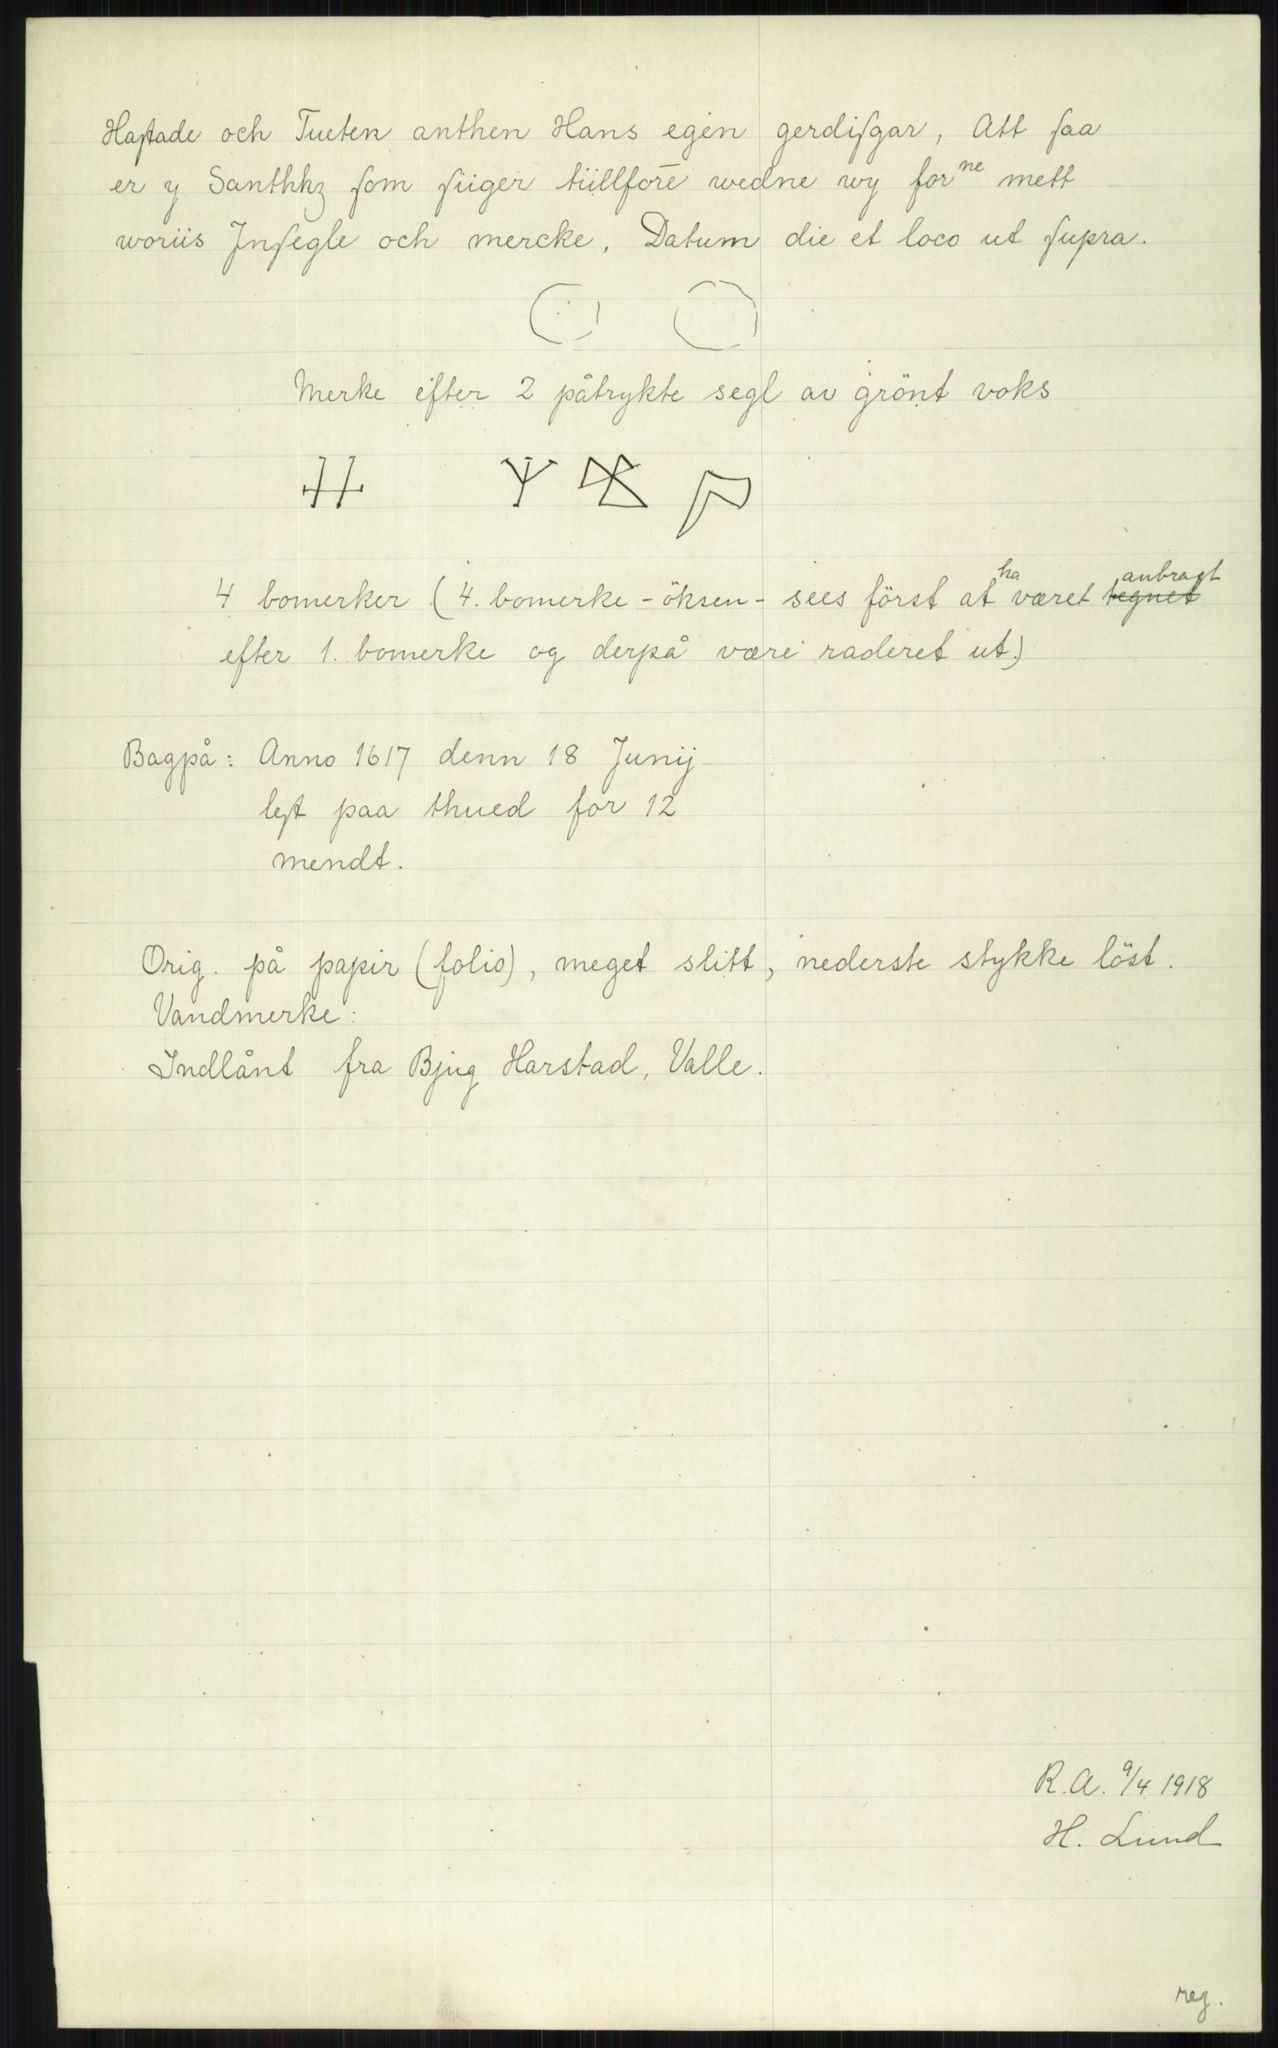 Haſtade och Tueten anthen Hans egen gerdiſgar, Att ſaa
er y Santhkz ſom ſiiger tiillforē wedne wy for ne mett
woriis Jnſegle och mercke, Datum die et loco ut ſupra.
Merke efter 2 påtrykte segl av grönt voks
4 bomerker (4. bomerke - öksen - sees först at ha været tegnet anbragt
efter 1. bomerke og derpå være raderet ut.)
Bagpå: Anno 1617 denn 18 Junij
leſt paa thued for 12
mendt.
Orig. på papir (folio), meget slitt, nederste stykke löst.
Vandmerke:
Indlånt fra Bjug Harstad, Valle.
R.A. 9/4 1918
H. Lund
reg.